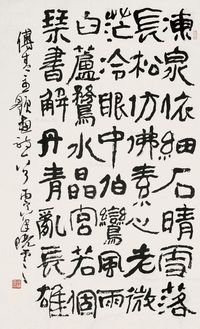 凍泉依細石晴雪落
長松仿佛素心老微
茫冷眼中伯鸞風雨
白蘆鷺水晶宮若個
琹書解丹青亂長雄
傅青主題畫詩一首